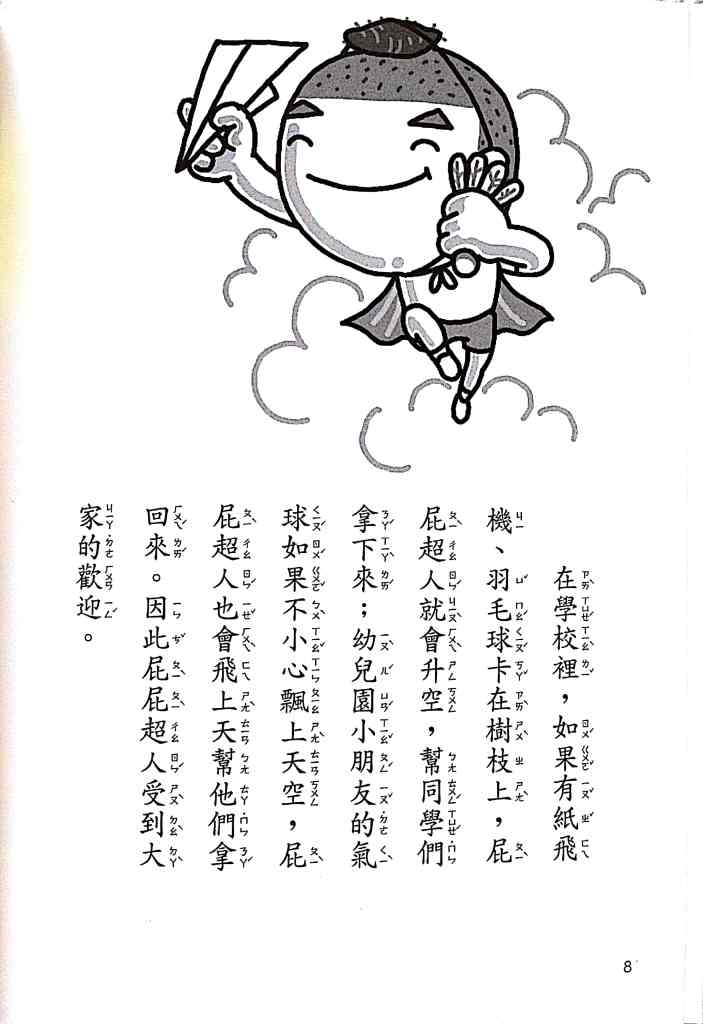 在學校裡，如果有紙飛
機、羽毛球卡在樹枝上，屁
屁超人就會升空，幫同學們
拿下來；幼兒園小朋友的氣
球如果不小心飄上天空，屁
屁超人也會飛上天幫他們拿
回來。因此屁屁超人受到大
家的歡迎。
8